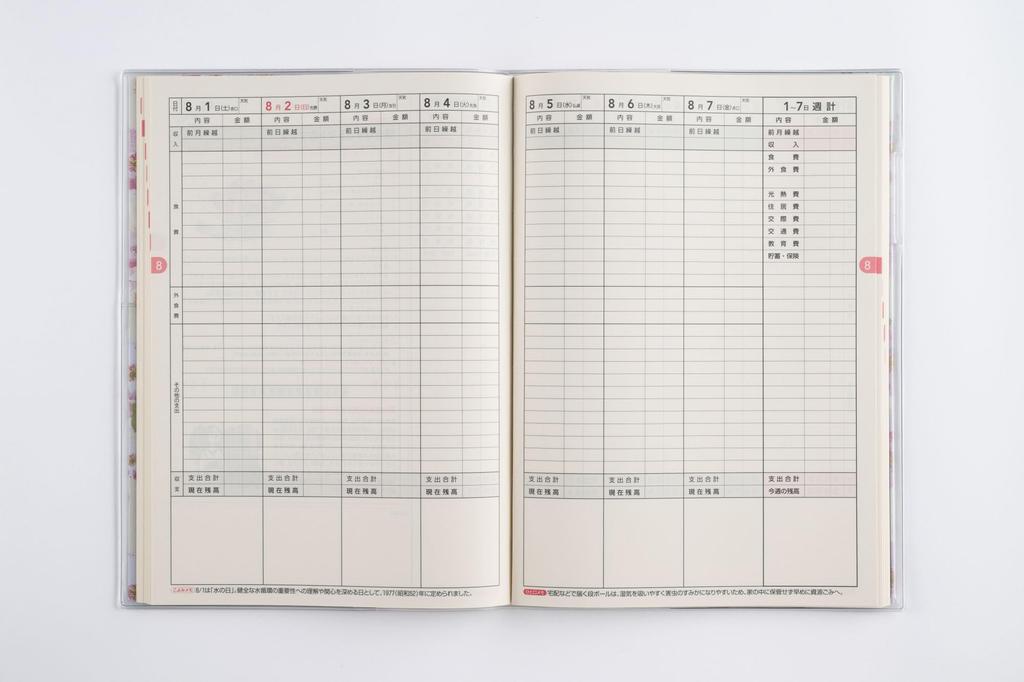 日付 8月1日(土) 天気 8月2日(日) 天気 8月3日(月) 天気 8月4日(火) 天気
内容 金額 内容 金額 内容 金額 内容 金額
収入 前月繰越 前日繰越 前日繰越 前日繰越
食費
外食費
その他の支出
収支 支出合計 支出合計 支出合計 支出合計
現在残高 現在残高 現在残高 現在残高
こよみメモ 8/1は「水の日」。健全な水循環の重要性への理解や関心を深める日として、1977(昭和52)年に定められました。
8
8月5日(水) 天気 8月6日(木) 天気 8月7日(金) 天気 1~7日 週計
内容 金額 内容 金額 内容 金額 内容 金額
前日繰越 前日繰越 前日繰越 前月繰越
収入
食費
外食費
光熱費
住居費
交際費
交通費
教育費
貯蓄・保険
支出合計 支出合計 支出合計 支出合計
現在残高 現在残高 現在残高 今週の残高
宅配などで届く段ボールは、湿気を吸いやすく害虫のすみかになりやすいため、家の中に保管せず早めに資源ごみへ。
8